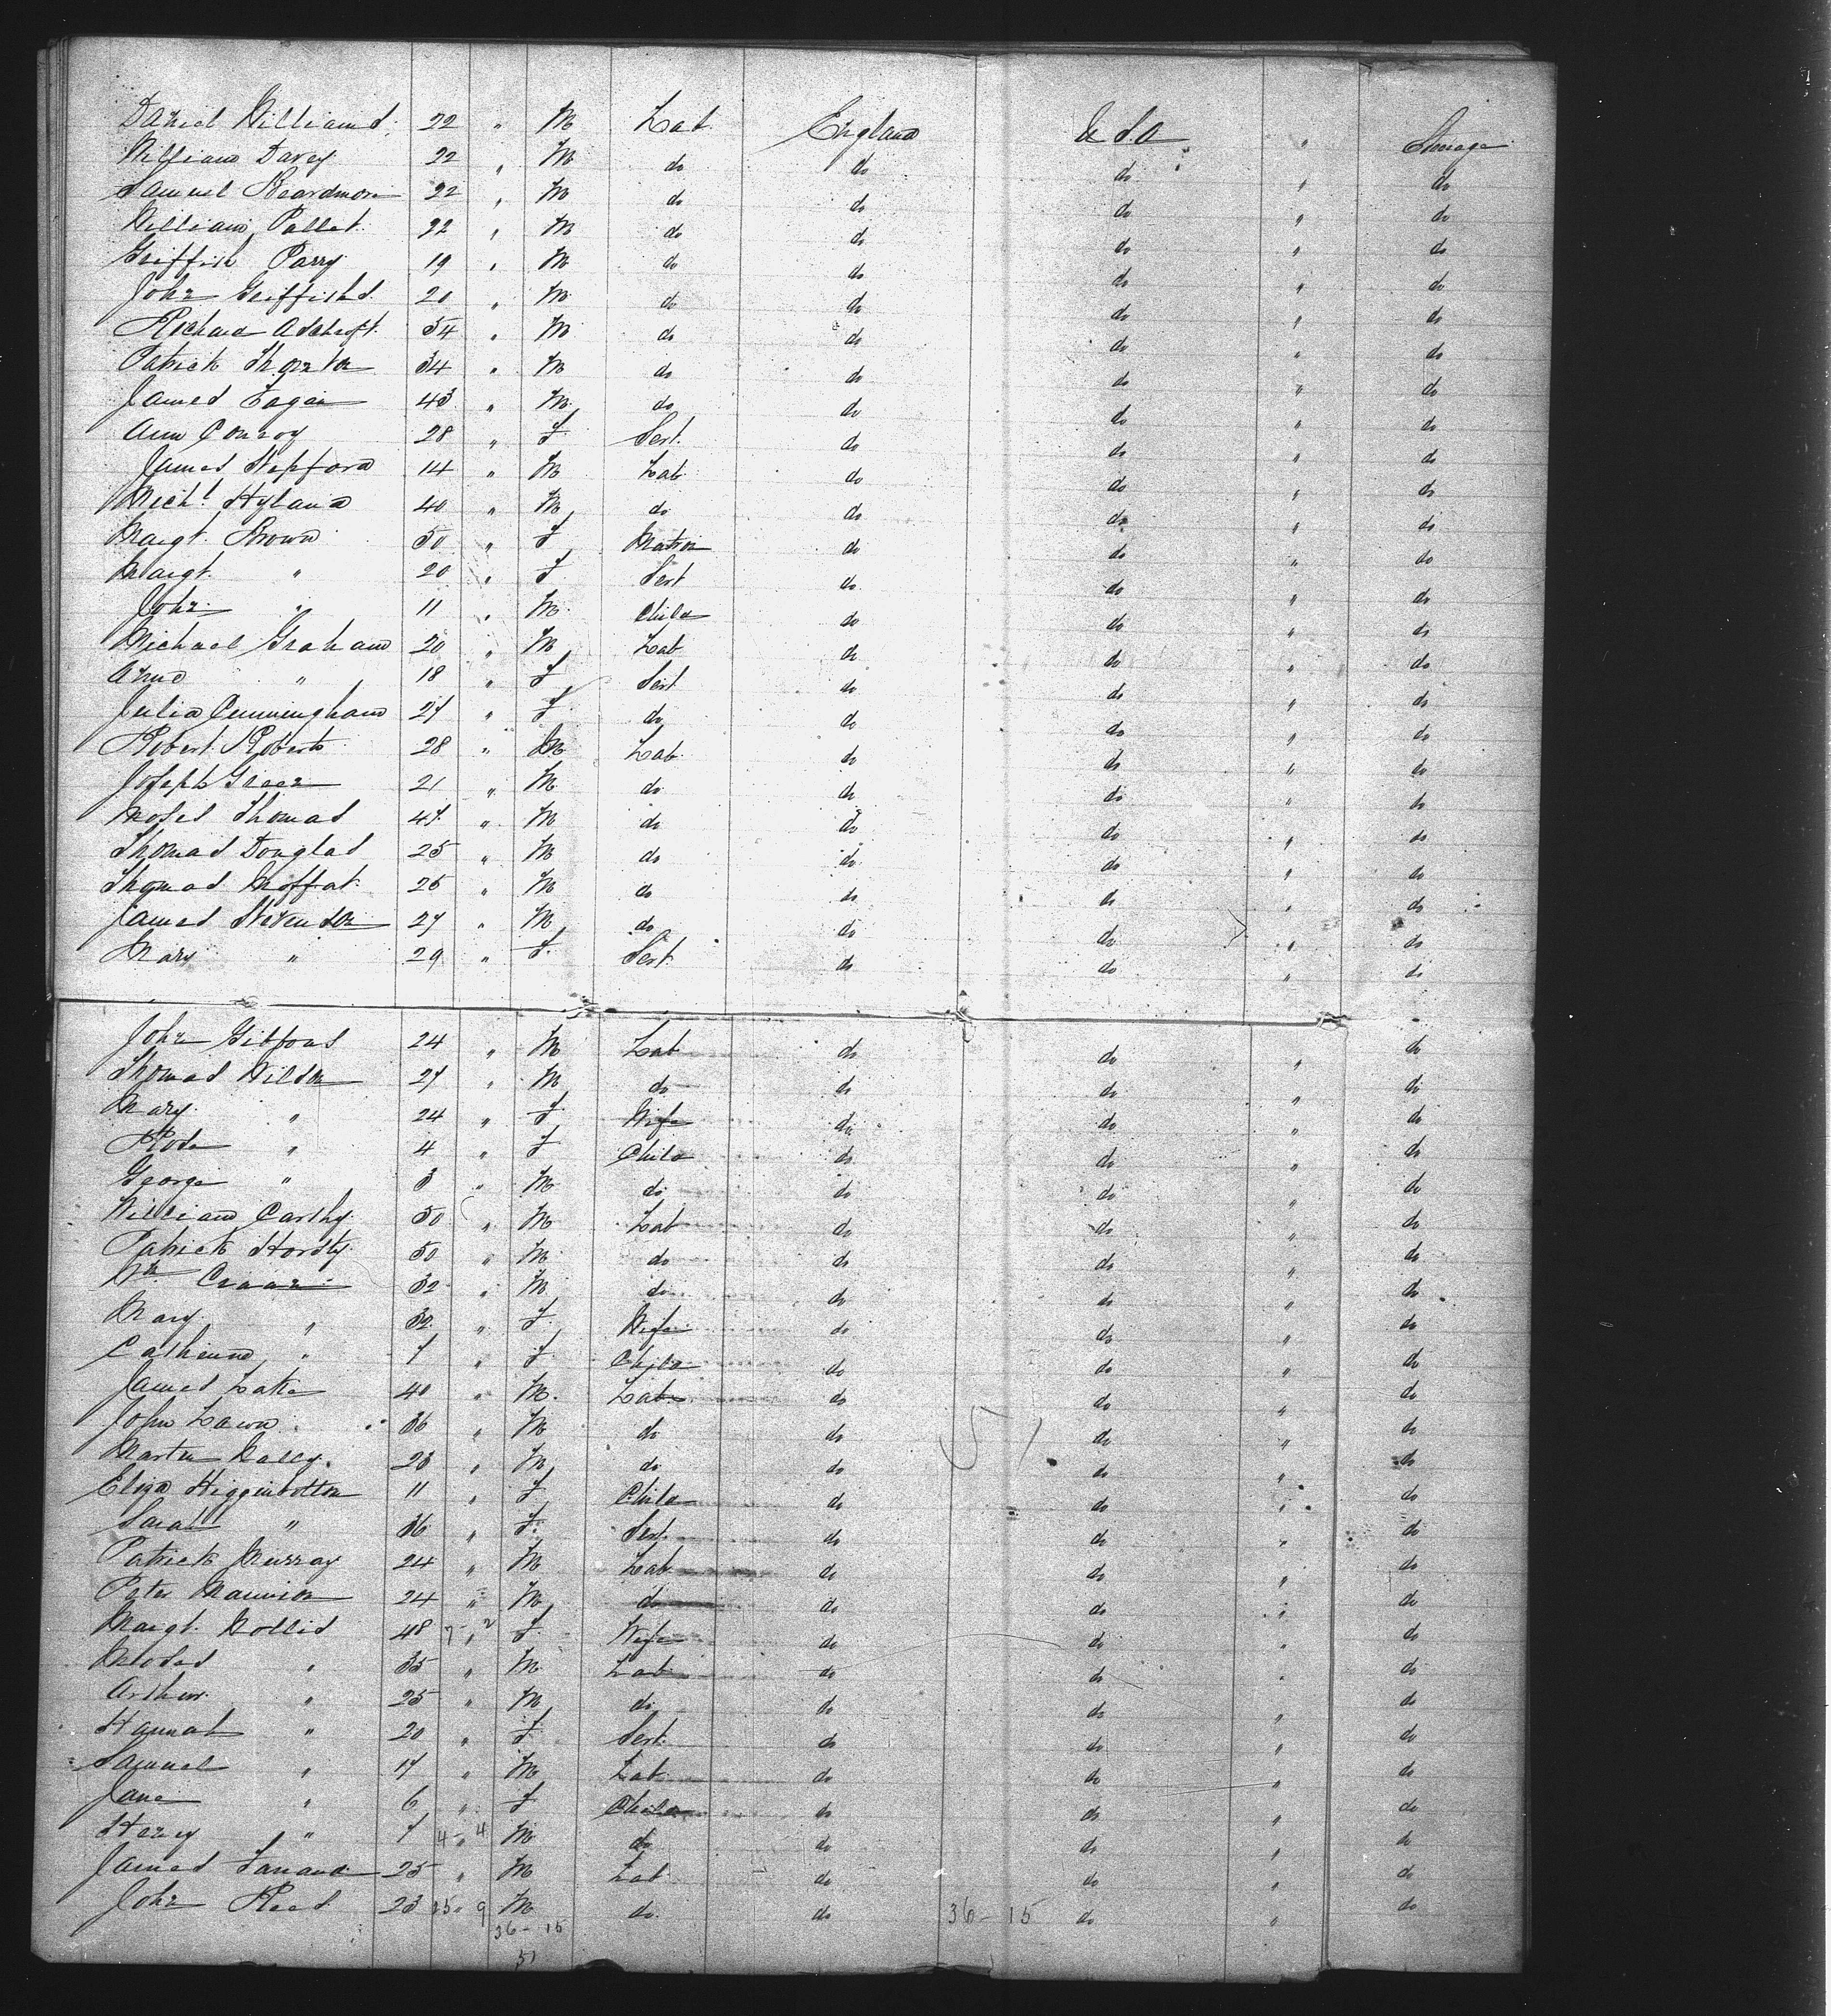 Daniel Williams 22 " M Lab England U.S.A " Steerage
William Davey 22 " M do do do " do
Samuel Beardmore 22 " M do do do " do
William Pallet 22 " M do do do " do
Griffith Parry 19 " M do do do " do
John Griffiths 20 " M do do do " do
Richard Ashcroft 54 " M do do do " do
Patrick Thornton 34 " M do do do " do
James Eagan 43 " M do do do " do
Ann Conroy 28 " F Sert do do " do
James Stepford 14 " M Lab do do " do
Michl Hyland 40 " M do do do " do
Margt. Brown 50 " F Matron do do " do
Margt. " 20 " F Sert do do " do
John " 11 " M Child do do " do
Michael Graham 20 " M Lab do do " do
Anne " 18 " F Sert do do " do
Julia Cunningham 27 " F do do do " do
Robert Roberts 28 " M Lab do do " do
Joseph Green 21 " M do do do " do
Moses Thomas 47 " M do do do " do
Thomas Douglas 25 " M do do do " do
Thomas Moffat 25 " M do do do " do
James Stevenson 27 " M do do do " do
Mary " 29 " F Sert do do " do
John Gibbons 24 " M Lab do do " do
Thomas Wilson 27 " M do do do " do
Mary " 24 " F Wife do do " do
Rose " 4 " F Child do do " do
George " 3 " M do do do " do
William Carthy 50 " M Lab do do " do
Patrick Horsty 50 " M do do do " do
Wm 32 " M do do do " do
Mary " 32 " F Wife do do " do
Catherine " 7 " F Child do do " do
James Lake 40 " M Lab do do " do
John Lawn 36 " M do do do " do
Martin Nally 23 " M do do do " do
Eliza Higginbottom 11 " F Child do do " do
Sarah " 36 " F Sert do do " do
Patrick Murray 24 " M Lab do do " do
Peter Mannion 24 " M do do do " do
Margt. Hollis 48 7 " 2 F Wife do do " do
Moses " 35 " M Lab do do " do
Arthur " 25 " M do do do " do
Hannah " 20 " F Sert do do " do
Samuel " 17 " M Lab do do " do
Jane " 6 " F Child do do " do
Henry " 7 4 - 4 M do do do " do
James 25 " M Lab do do " do
John Reed 23 25 " 9 M do do 36 - 15 do " do
36 - 15
51